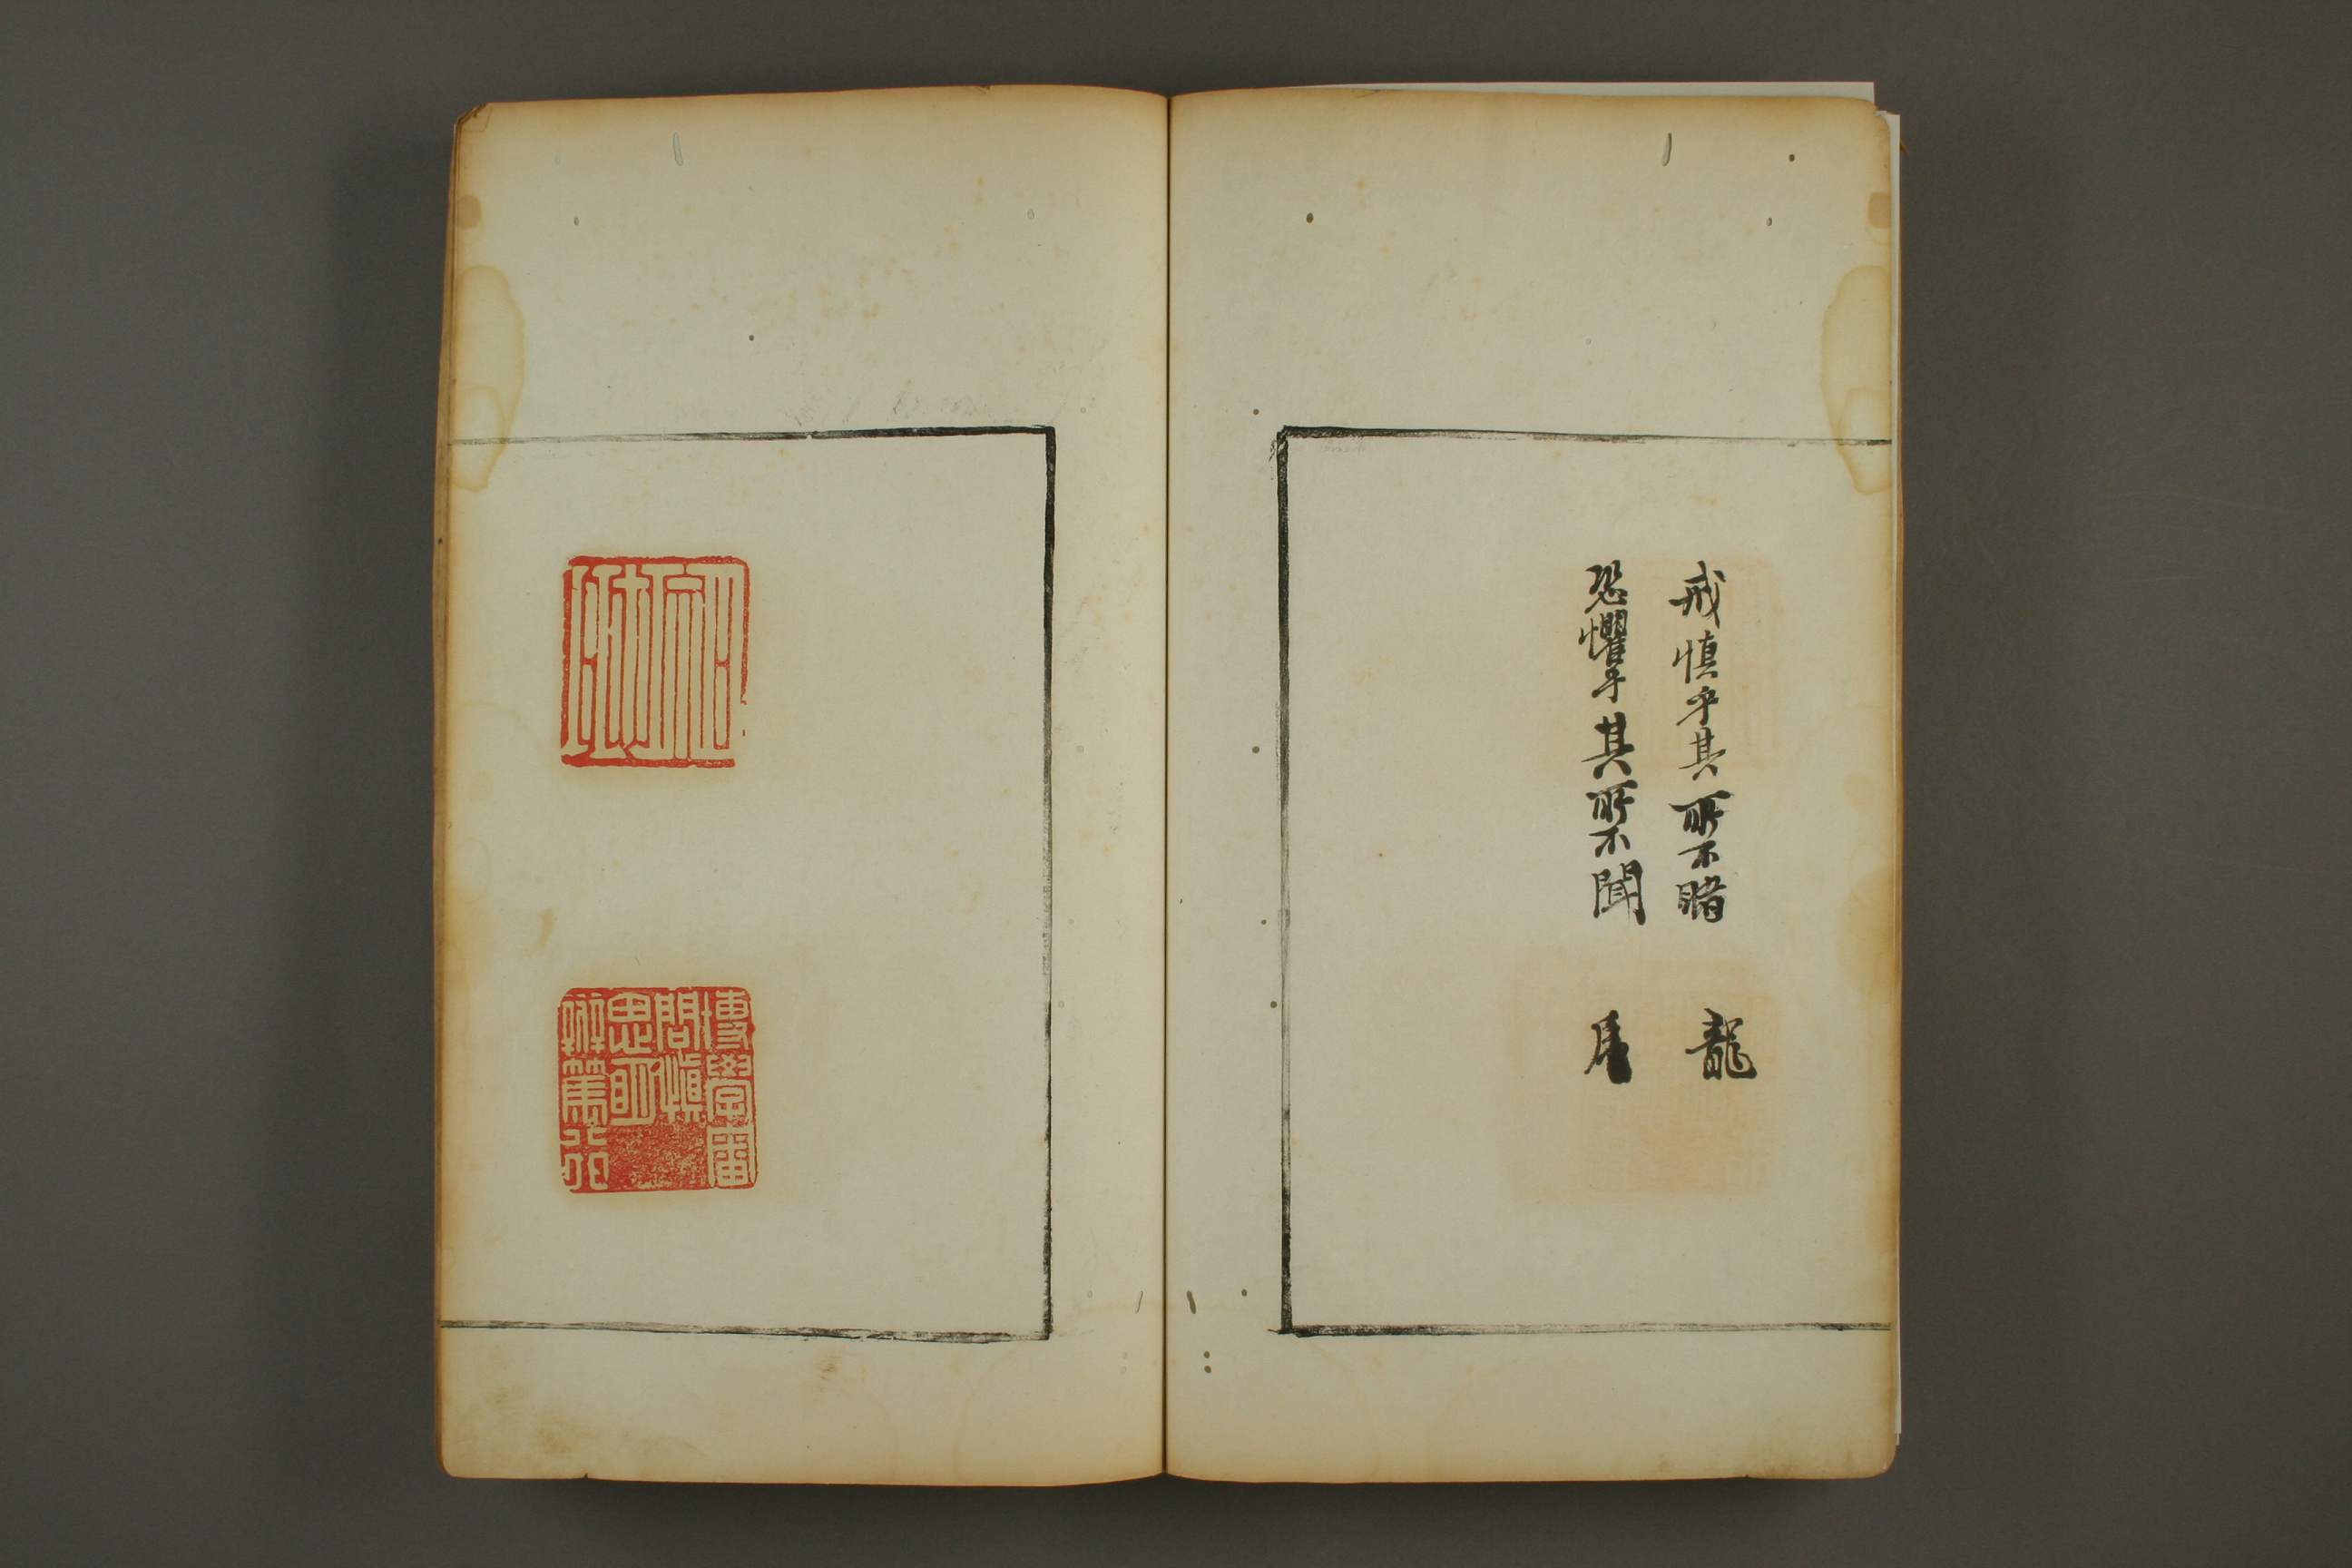 戒慎乎其所不睹 龍
恐懼乎其所不聞
博學審
問慎
思明
辨篤行